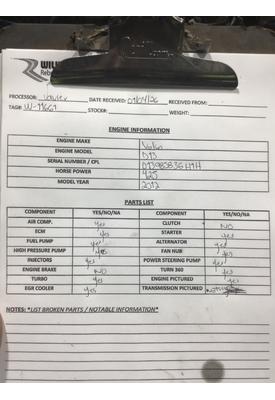 WILL
Reb
PROCESSOR: DATE RECEIVED: 09/04/26 RECEIVED FROM:
TAG#: W-11669 STOCK#: WEIGHT:
ENGINE INFORMATION
ENGINE MAKE Volvo
ENGINE MODEL D13
SERIAL NUMBER / CPL
HORSE POWER 425
MODEL YEAR 2012
PARTS LIST
COMPONENT YES/NO/NA COMPONENT YES/NO/NA
AIR COMP. yes CLUTCH NO
ECM yes STARTER yes
FUEL PUMP yes ALTERNATOR yes
HIGH PRESSURE PUMP yes FAN HUB yes
INJECTORS yes POWER STEERING PUMP yes
ENGINE BRAKE NO TURN 360 yes
TURBO yes ENGINE PICTURED yes
EGR COOLER yes TRANSMISSION PICTURED
NOTES: *LIST BROKEN PARTS / NOTABLE INFORMATION*